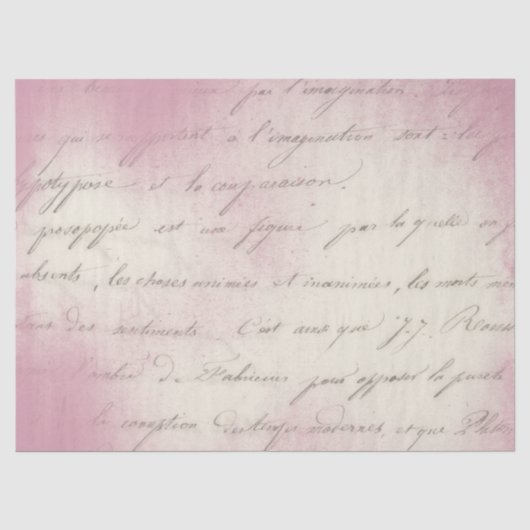 par l'imagination.
qui se rapportent à l'imagination sont : les
et la comparaison.
prosopopée est une figure par laquelle on
absents, les choses animées et inanimées, les morts
des sentiments. C'est ainsi que J. J.
l'ombre de Fabricius pour opposer la pureté
la corruption des temps modernes, et que